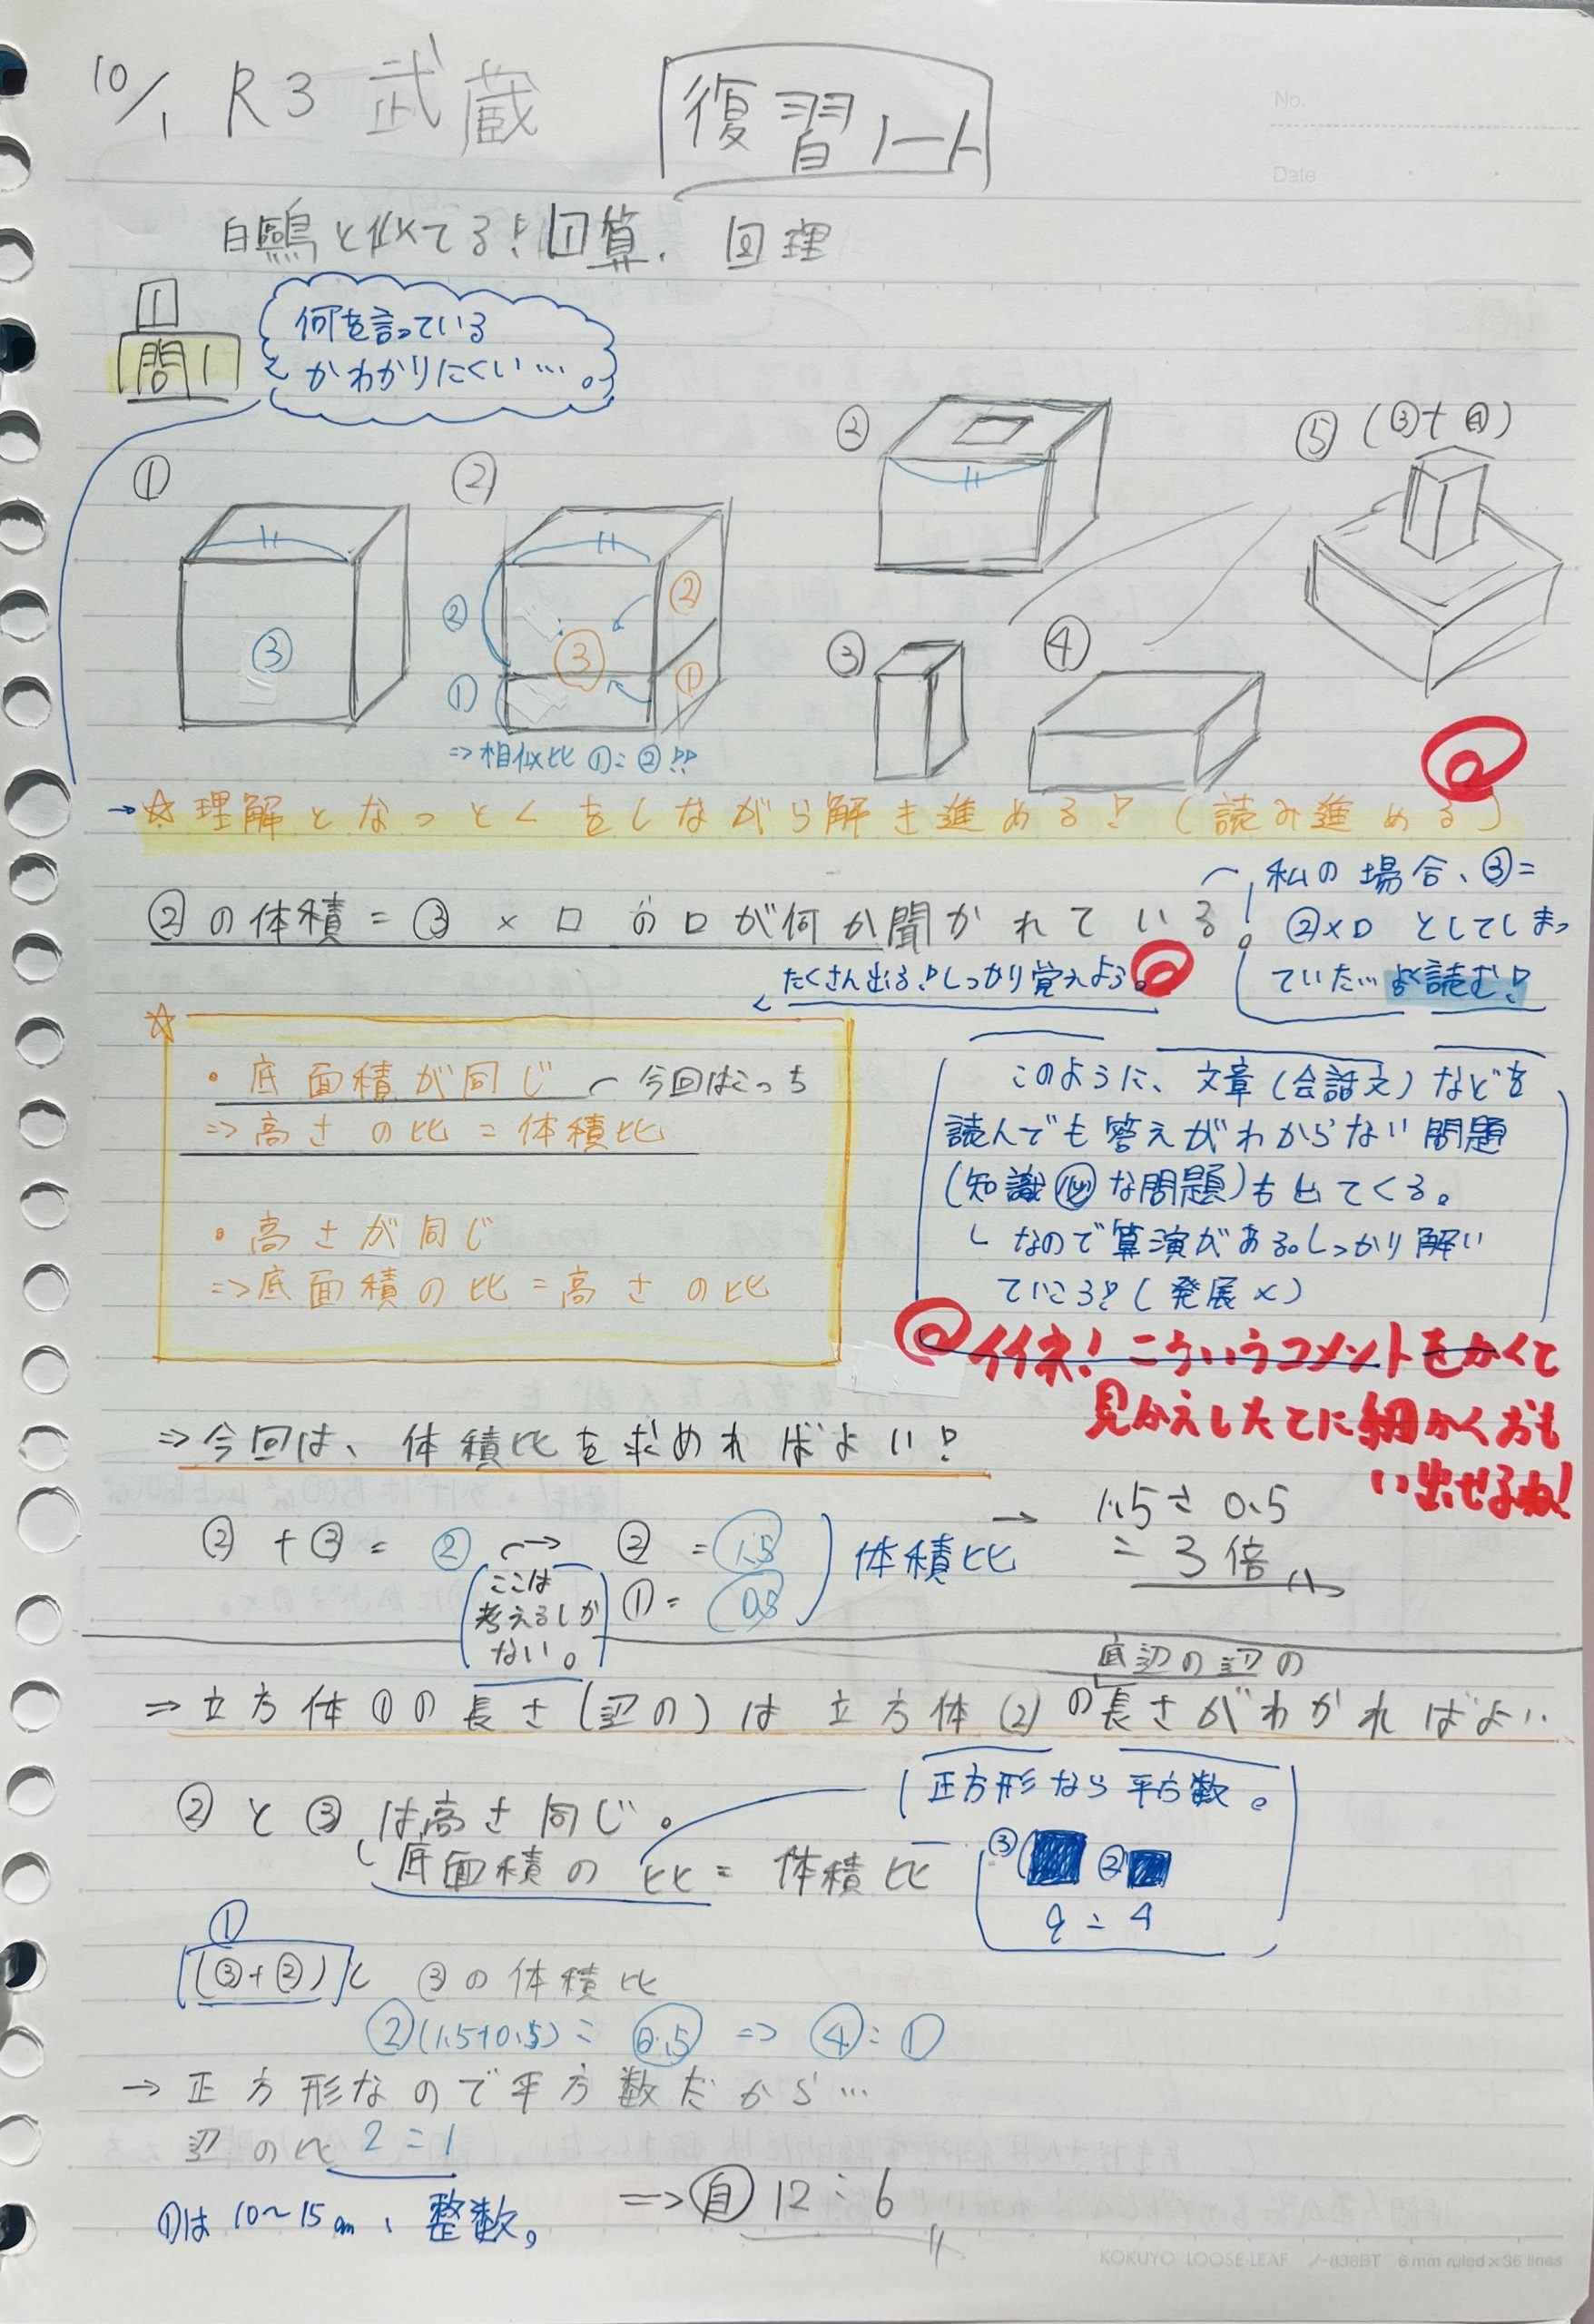 10/1 R3 武蔵 復習ノート
No.
Date
白鷗と似てる! 回算. 回理
1
問1
何を言っている
かわかりにくい…。
① ② ② ⑤ (③+④)
③ ④
③
② ① ③ ② ①
⇒相似比 ①:②!!
→☆理解となっとくをしながら解き進める!(読み進める)
②の体積=③×□の□が何か聞かれている!
私の場合、③=
②×□としてしまっ
ていた…よく読む!
たくさん出る!しっかり覚えよう。
☆
・底面積が同じ 今回はこっち
⇒高さの比=体積比
・高さが同じ
⇒底面積の比=高さの比
このように、文章(会話文)などを
読んでも答えがわからない問題
(知識㊙な問題)も出てくる。
なので算演がある。しっかり解い
ていこう!(発展×)
イイネ!こういうコメントをかくと
見かえしたてに細かくおも
い出せるね!
⇒今回は、体積比を求めればよい!
②+③=② → ②=1.5
①=0.5
体積比 → 1.5÷0.5
=3倍
(ここは
考えるしか
ない。)
⇒立方体①の長さ(辺の)は立方体(2)の長さがわかればよい.
底辺の辺の
②と③は高さ同じ。
底面積の比=体積比
正方形なら平方数。
③ ②
9:4
①
(③+②)と③の体積比
②(1.5+0.5):0.5 ⇒ ④:①
→正方形なので平方数だから…
辺の比 2:1
①は10~15cm、整数。
⇒自 12:6
KOKUYO LOOSE-LEAF ノ-836BT 6 mm ruled×36 lines